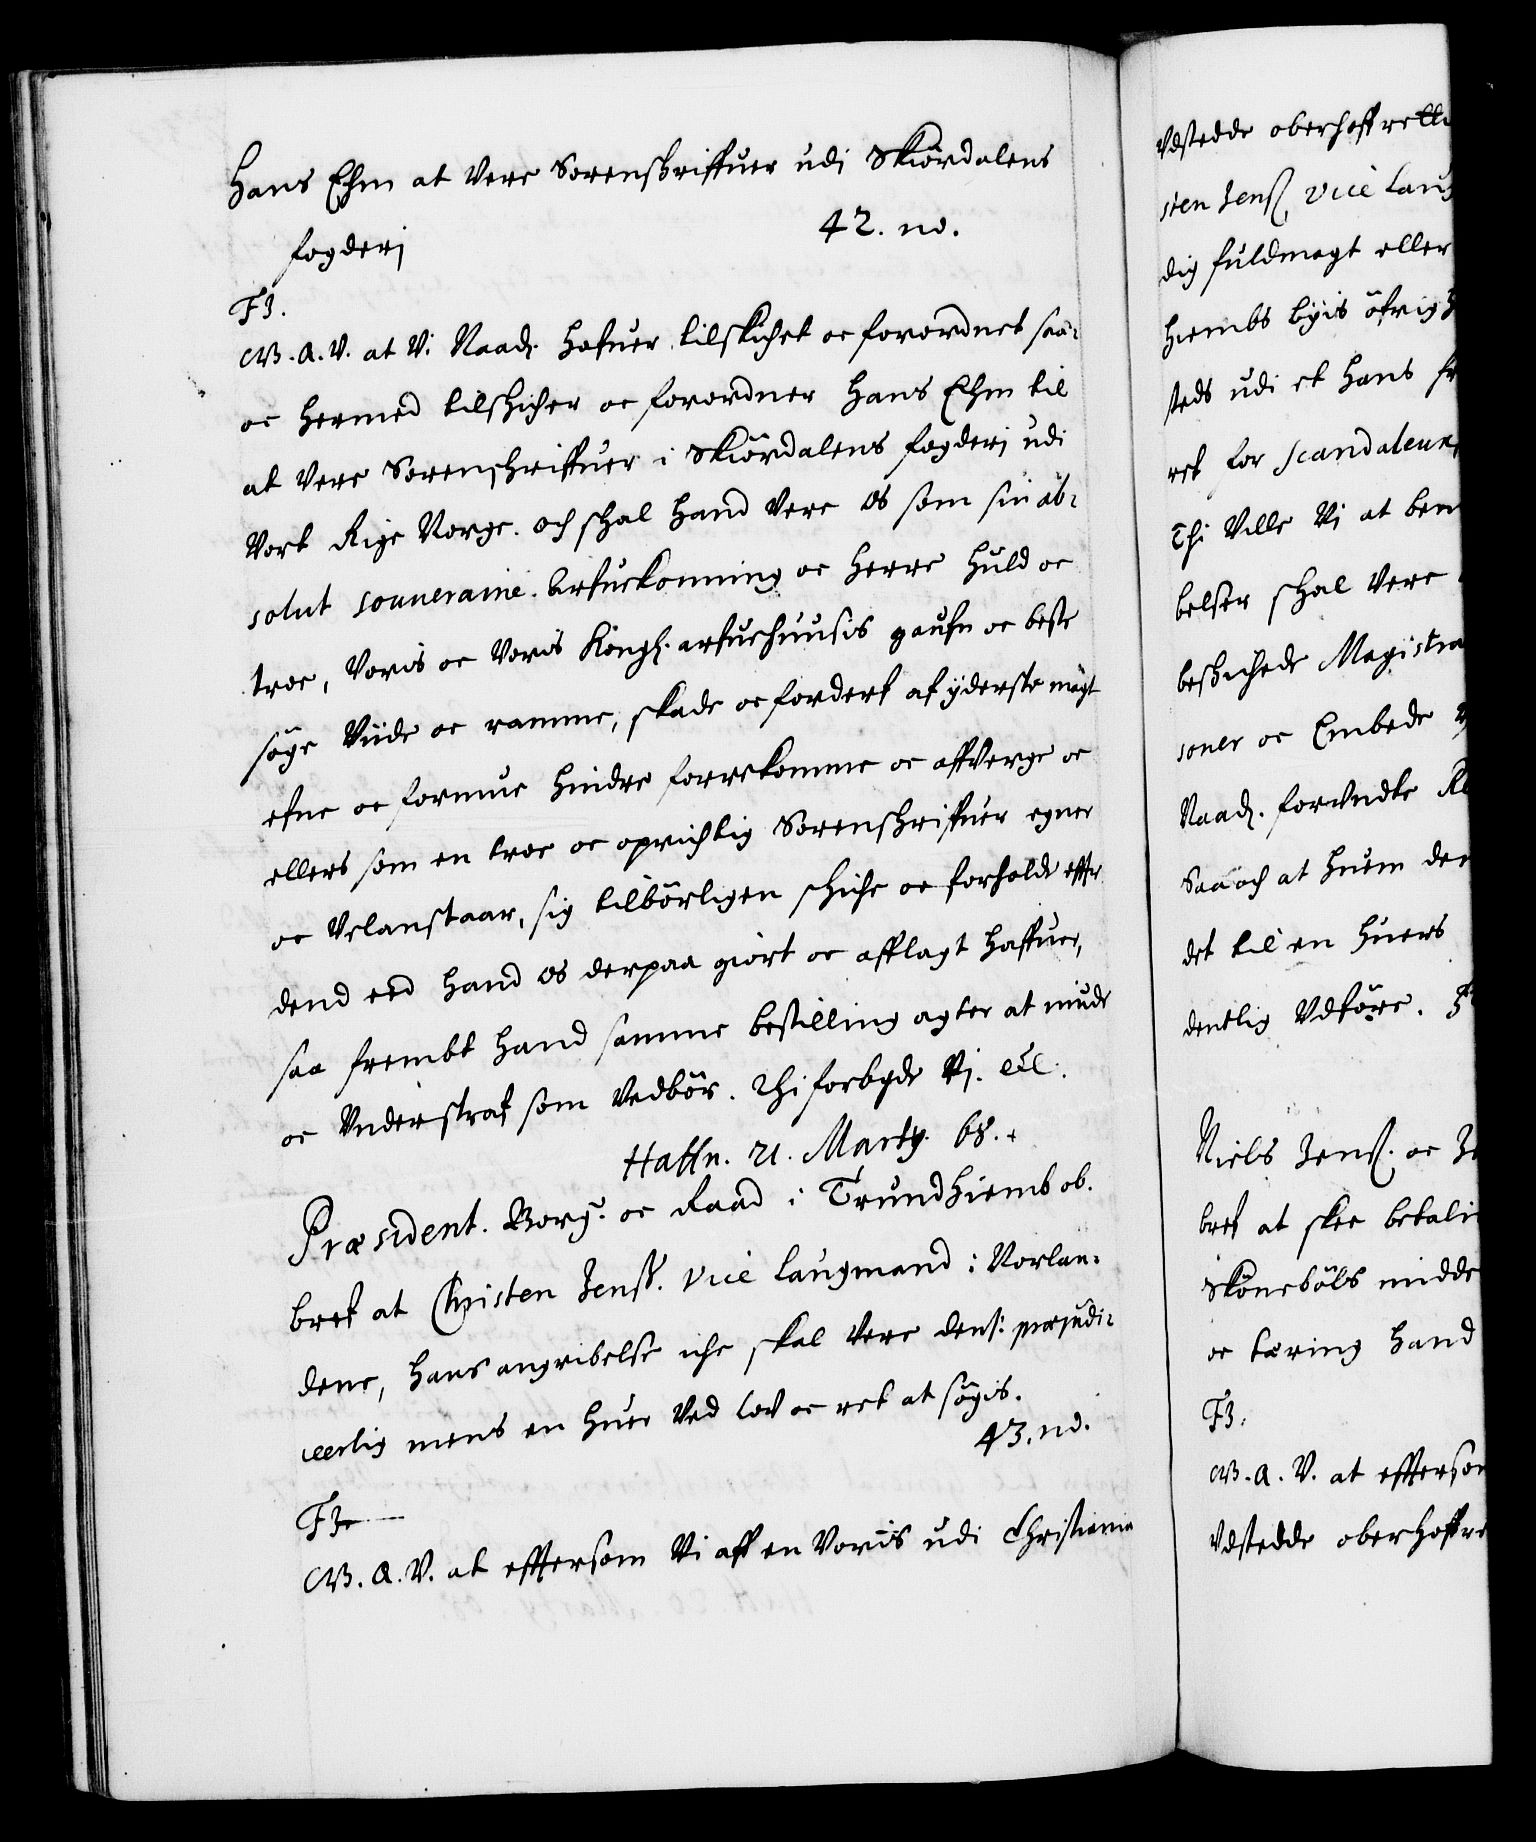 Hans Ehm at Vere Sorenskriffuer udi Skiördalens
fogderj
42. no.
F3.
G.A.V. at Vi Naad. hafuer tilskichet oc forordnet saa-
oc hermed tilskicher oc forordner Hans Ehm til
at Vere Sorenschriffuer i Skiördalens fogderj udi
Vort Rige Norge. och schal hand Vere Os som sin ab-
solut souveraine. Arfuekonning oc Herre huld oc
troe, Voris oc Voris Kongl. arfuehuusis gaufn oc beste
söge Viide oc ramme, skade oc forderf af yderste magt
efne oc formue hindre forrekomme oc affVerge oc
ellers som en troe oc oprichtig Sorenschriffuer egner
oc Velanstaar, sig tilbörligen schiche oc forholde effter
dend eed hand Os derpaa giort oc afflagt haffuer,
saa frembt hand samme bestilling agter at niude
oc Vnderstraf som Vedbör. Thi forbyde Vj. etc.
Haffn. 21. Martij. 68.
Præsident. Borg. oc Raad i Trundhiemb ob.
bref at Christen Jenss. Vice Laugmand i Norlan-
dene, hans angribelse iche skal Vere dens: præjudi-
ceerlig mens en huer Ved lov oc ret at sögis.
43. no.
F3
G.A.V. at efftersom Vi aff en Voris udi Christiania
Vdstedde oberhoffrette
sten Jens. Vice Laug
dig fuldmagt eller
hiembs byis öfrigh
steds udi et hans fr
ret for scandaleux,
Thi Ville Vi at ben
belser schal Vere
beschichede Magistra
soner oc Embede
Naad. forVndte
Saa och at huem der
det til en huers
dentlig Vdföre.
Niels Jens. oc
bref at skee betali
Sköneböls midde
oc tæring hand
F3.
G.A.V. at efftersom
Vdstedde oberhoffre